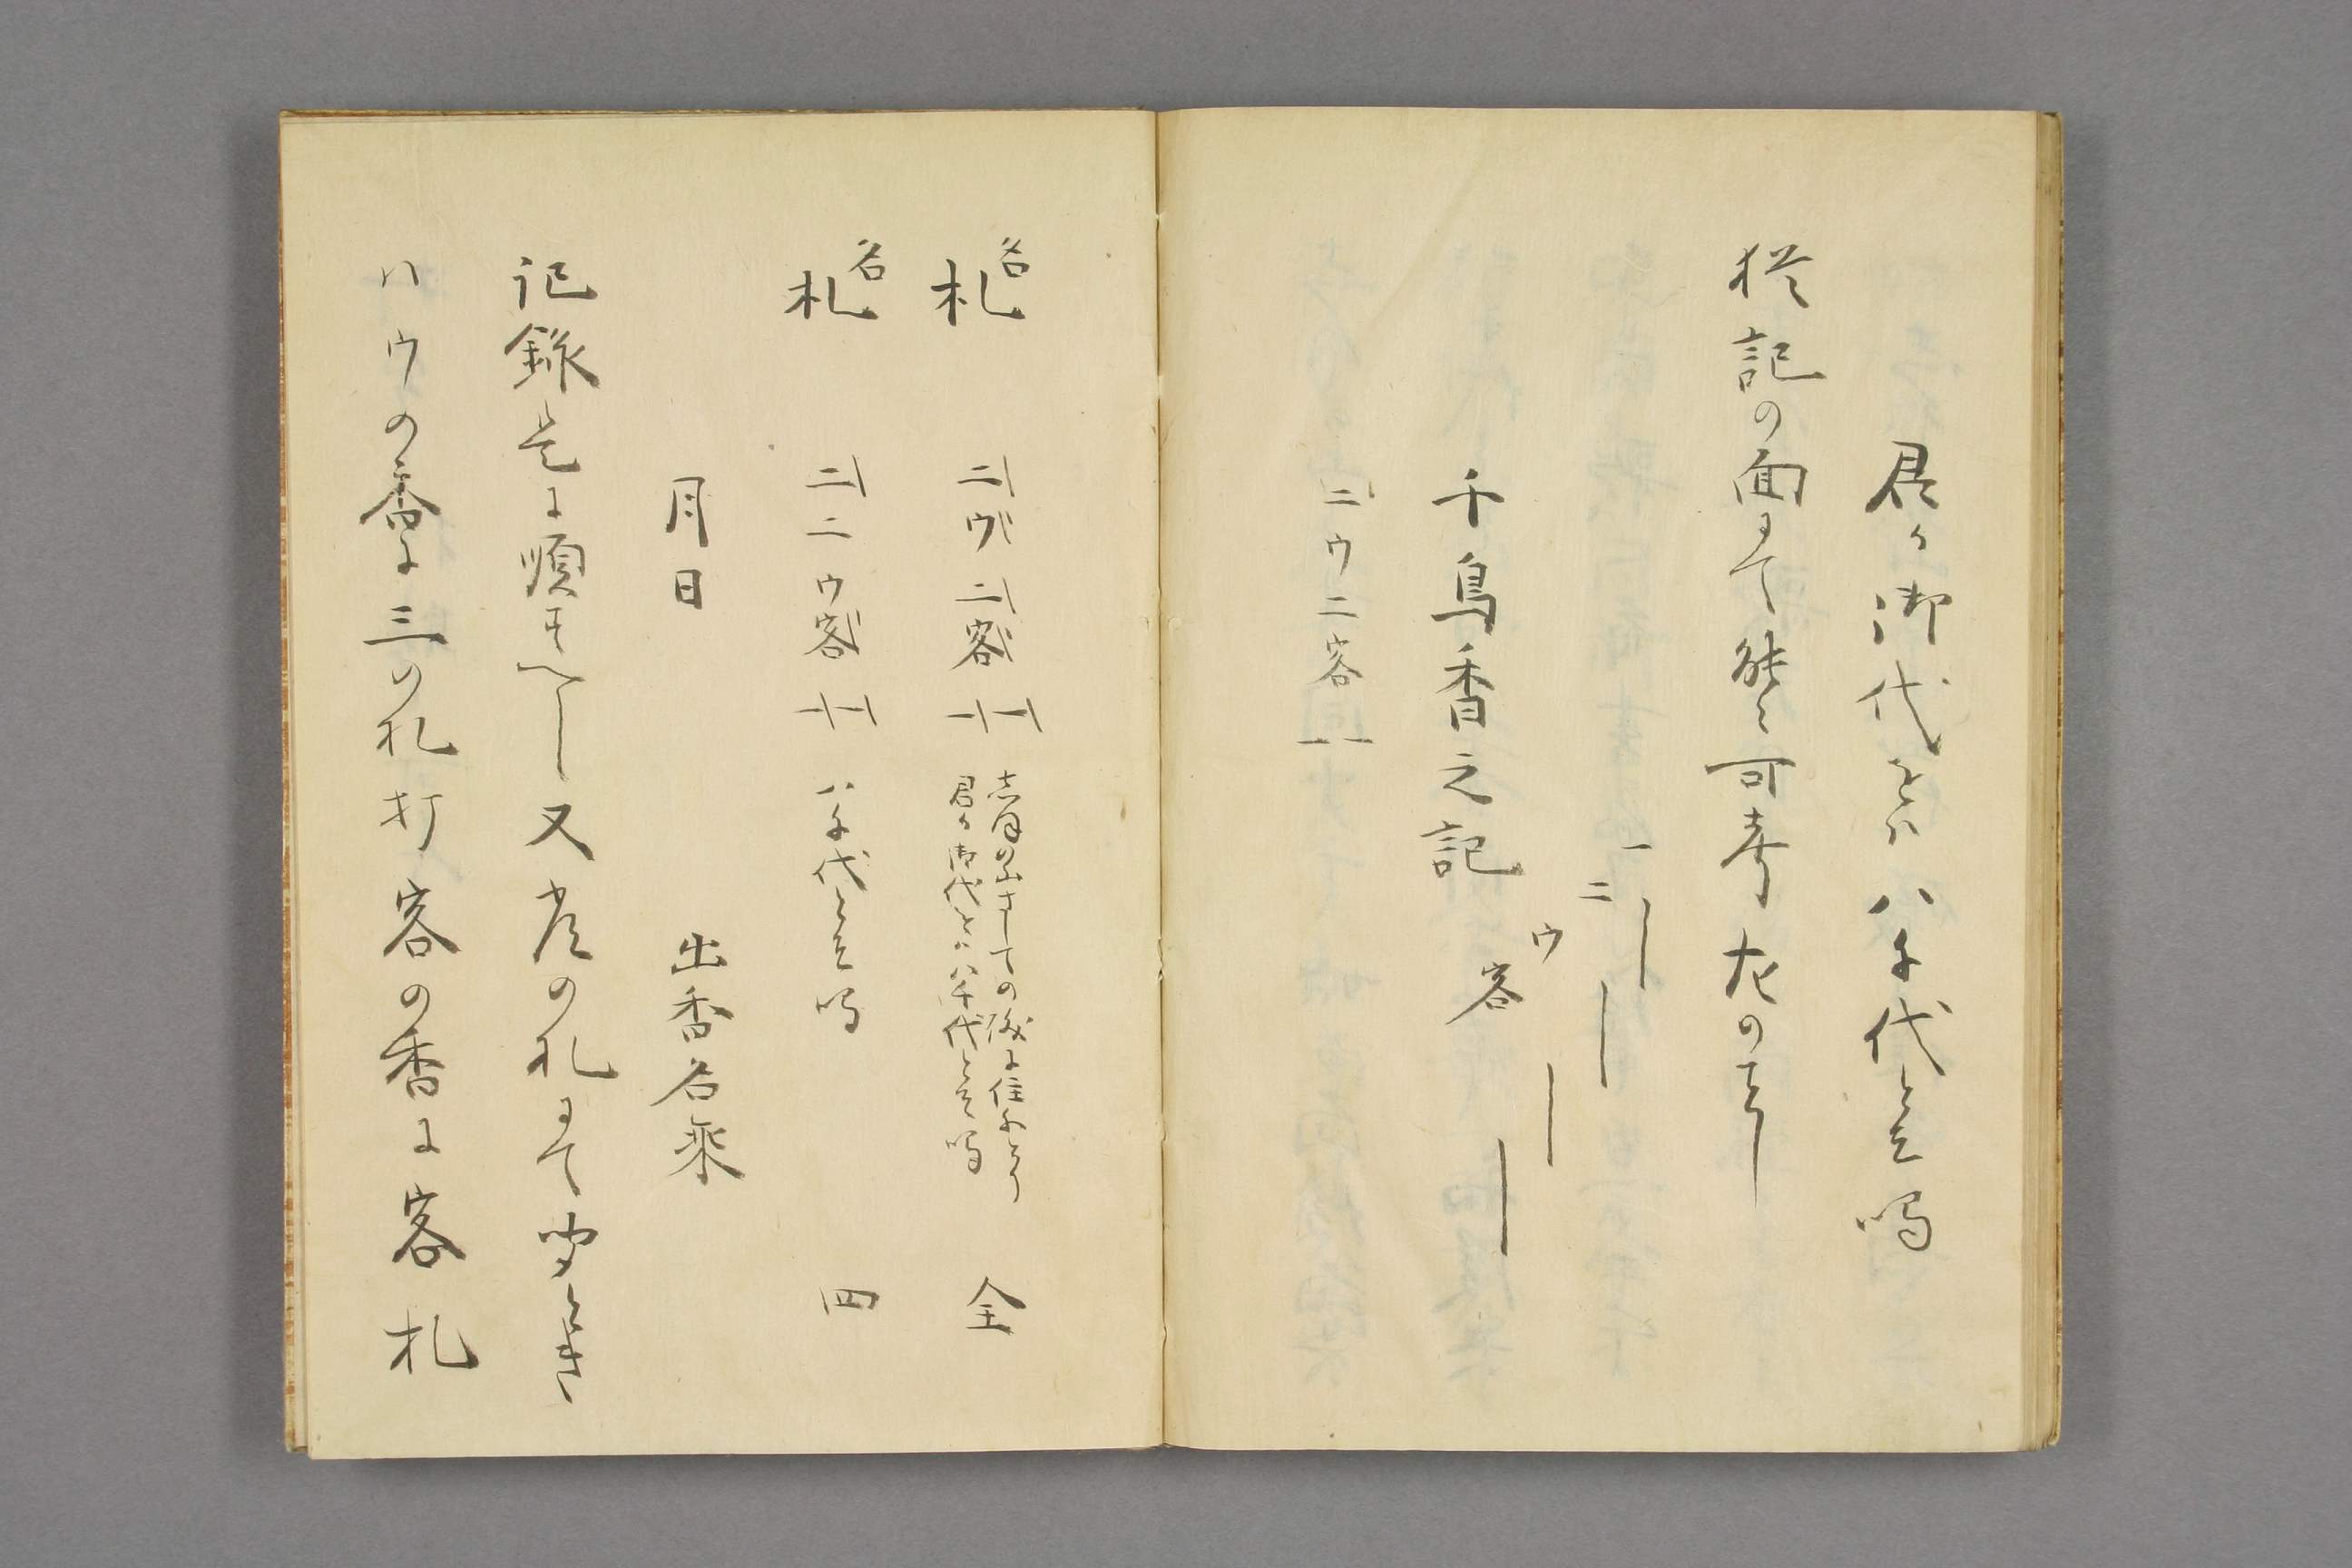 君か御代をは八千代とそ鳴
扨記の面にて能々可考左のことし
一
二
ウ
客
千鳥香之記
二ウ二客一一
名
札 二ウ二客一一 志ほの山さしての磯に住千とり 全
君か御代をは八千代とそ鳴
名
札 二二ウ客一一 八千代とそ鳴 四
月日 出香名乗
記録是に順すへし又常の札にて聞ときハ
ウの香に三の札打客の香に客札